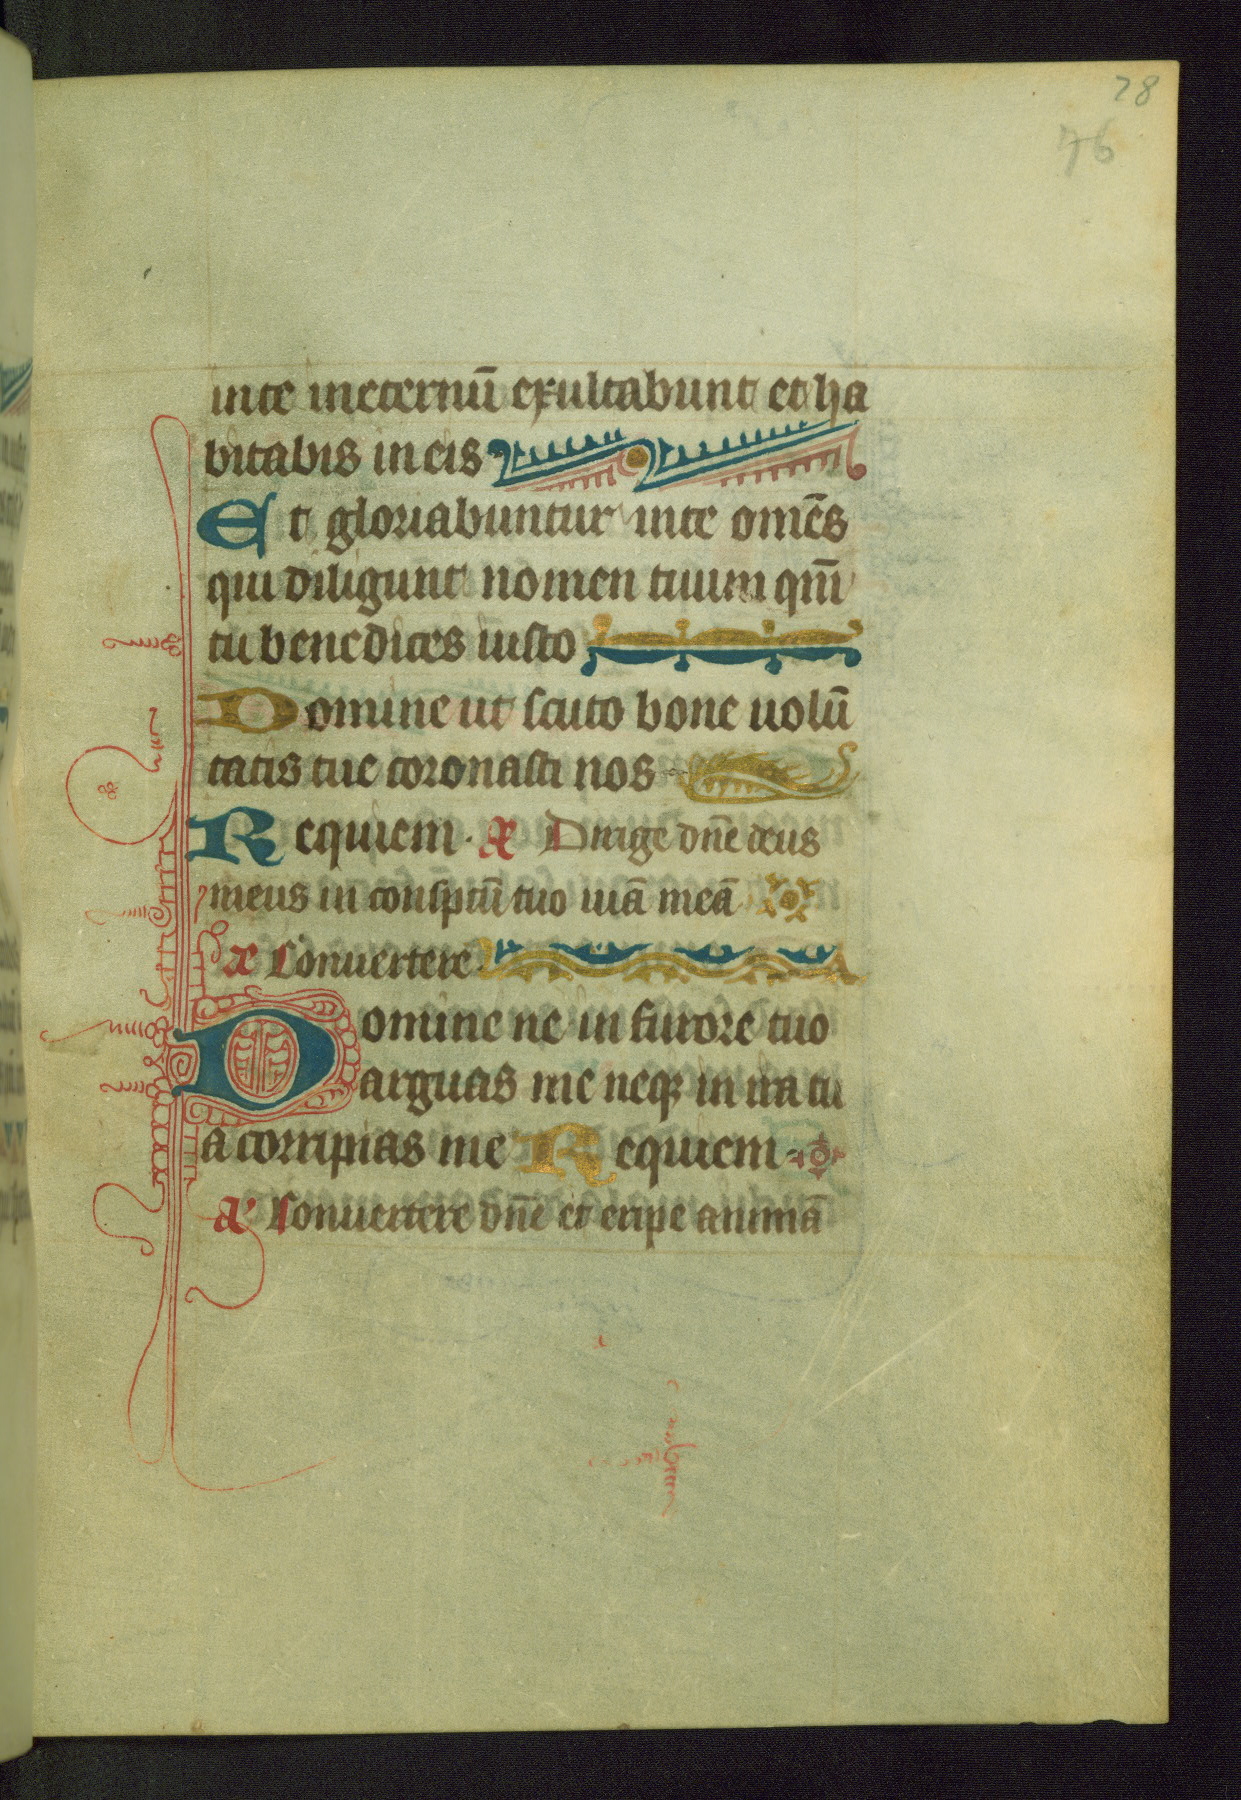 28
46
inte ineternū exultabunt et ha
bitabis in eis
Et gloriabuntur inte om̄es
qui diligunt nomen tuum qm̄
tu benedices iusto
Domine ut scuto bone uolū
tatis tue coronasti nos
Requiem. a Dirige dn̄e deus
meus in conspcū tuo uiā meā
a Conuertere
Domine ne in furore tuo
arguas me neqꝫ in ira tu
a corripias me Requiem.
a Conuertere dn̄e et eripe animā